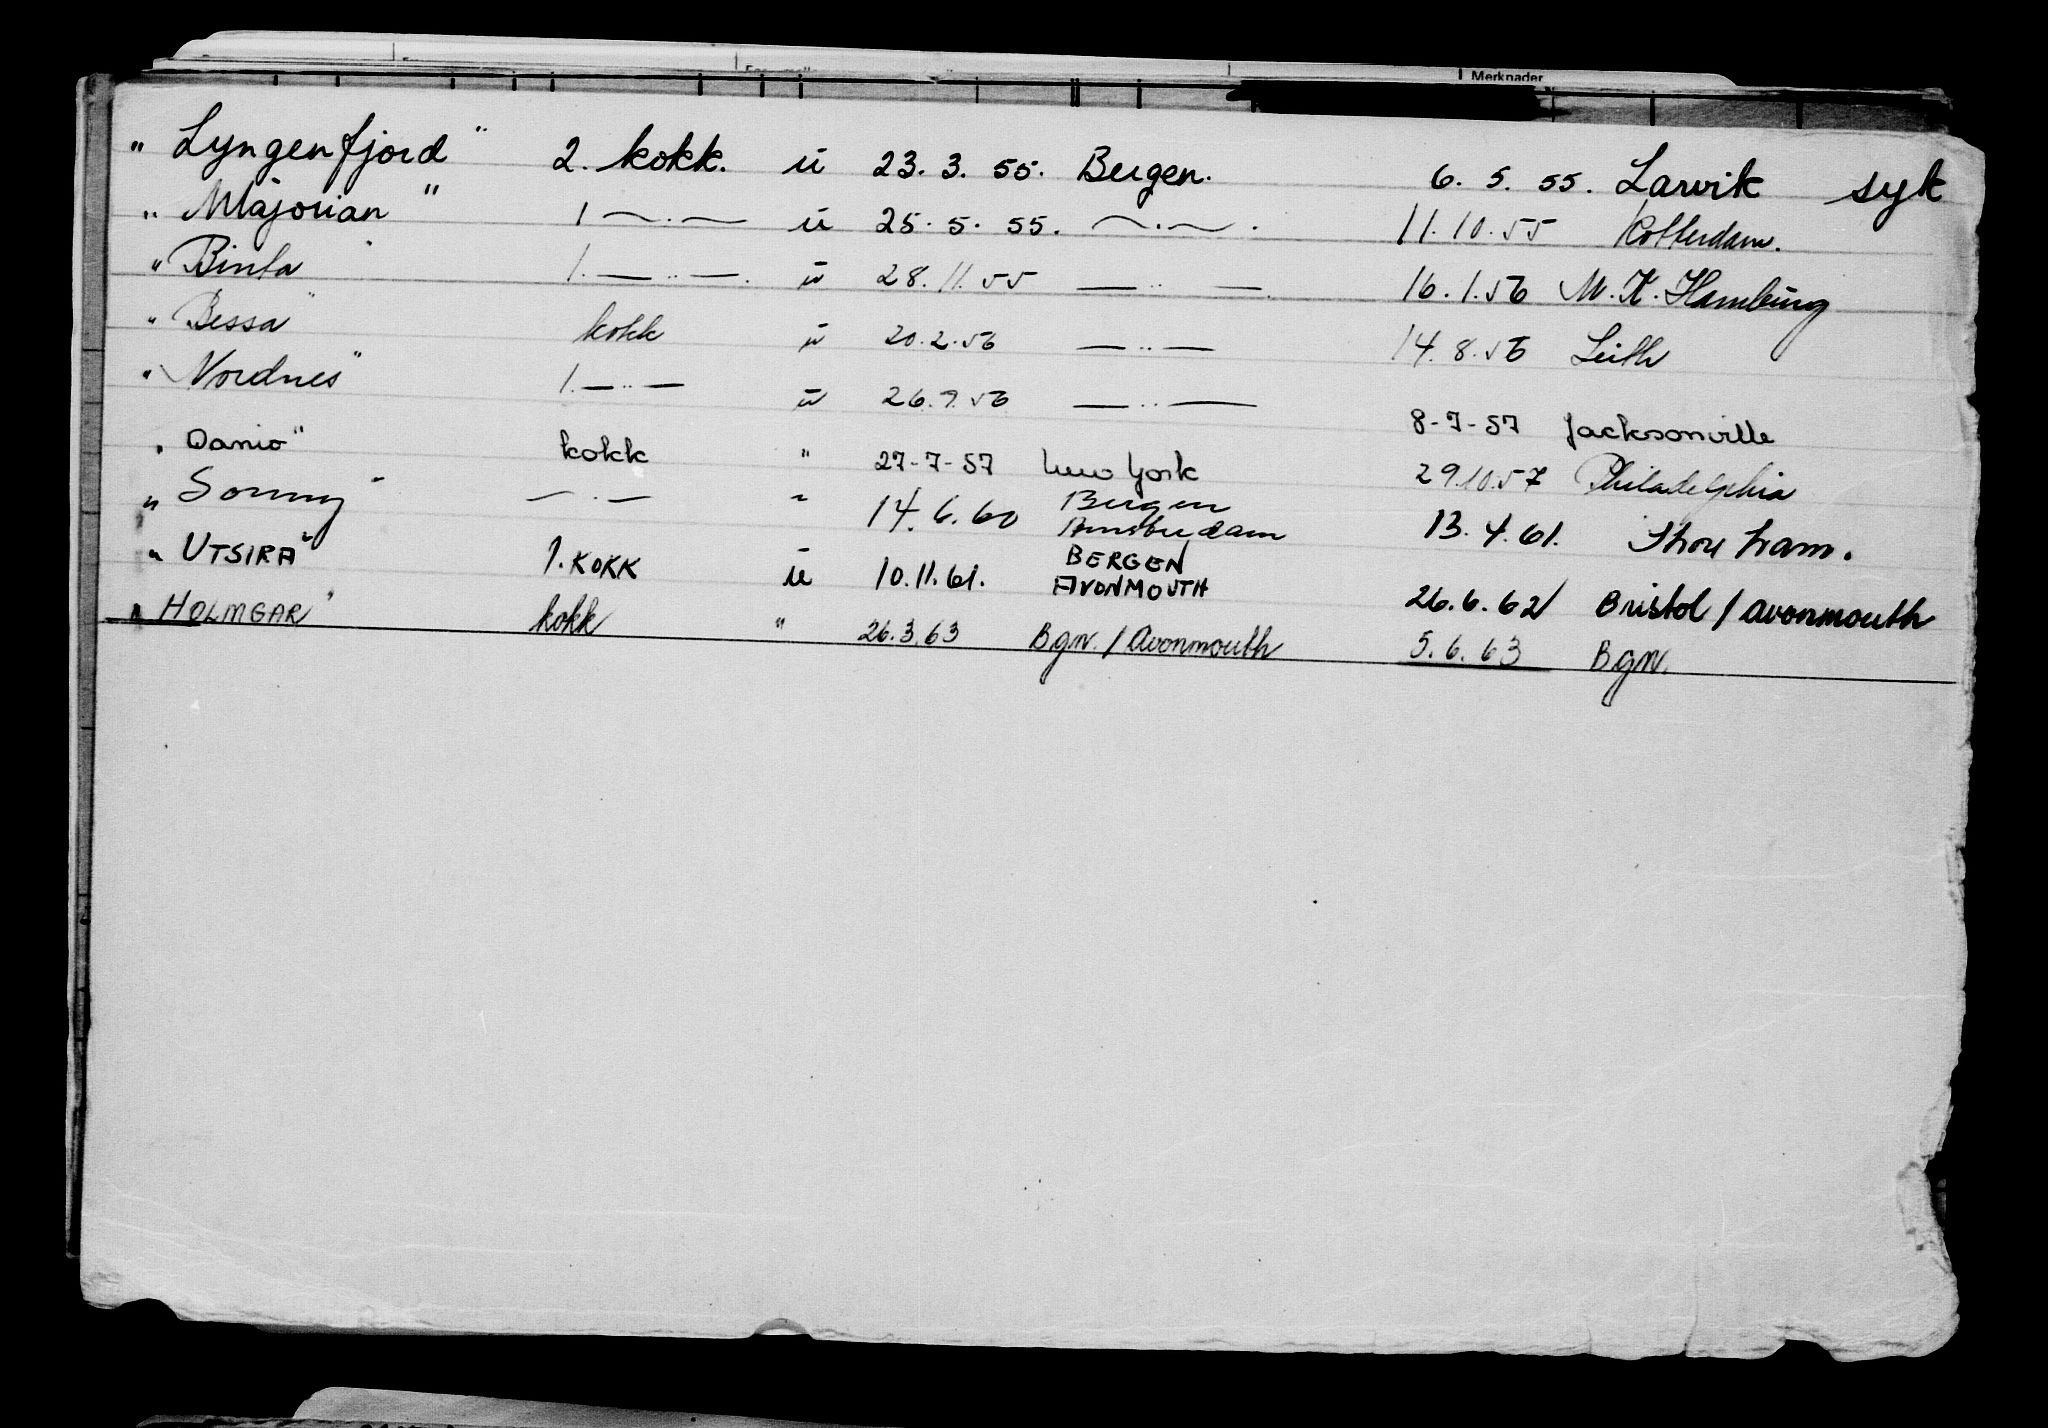 Merknader
"Lyngenfjord" 2. kokk. ü 23. 3. 55. Bergen. 6. 5. 55. Larvik syk
"Majorian" 1 ~.~ ü 25. 5. 55. ~.~. 11. 10. 55 Rotterdam.
"Binta" 1. — .. —. ü 28. 11. 55 — .. —. 16. 1. 56 M. K. Hamburg
"Bessa" kokk ü 20. 2. 56 — .. — 14. 8. 56 Leith
"Nordnes" 1. — .. — ü 26. 9. 56 — .. — 8-7-57 Jacksonville
"Danio" kokk " 27-7-57 New York 29.10.57 Philadelphia
"Sonny" — . — " 14. 6. 60 Bergen Amsterdam 13. 4. 61.
"UTSIRA" 1. KOKK ü 10. 11. 61. BERGEN AVONMOUTH 26. 6. 62 Bristol / avonmouth
"HOLMGAR" kokk " 26.3.63 Bgn. / Avonmouth 5. 6. 63 Bgn.